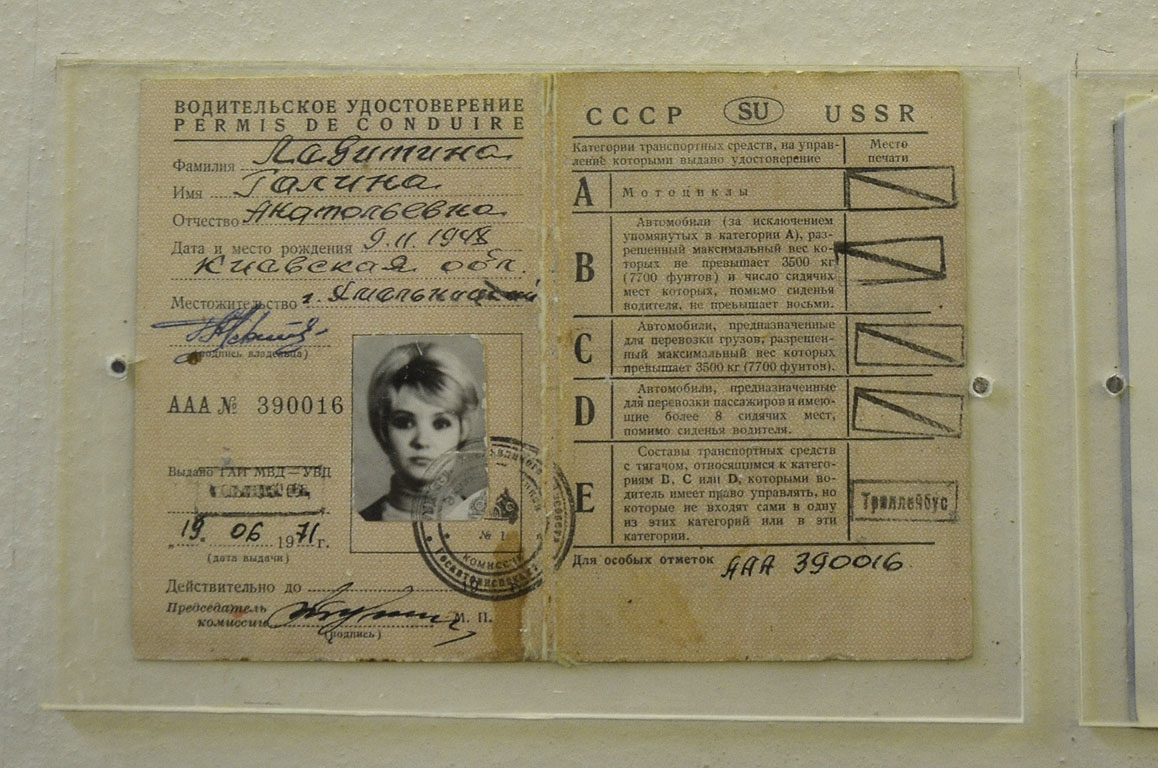 ВОДИТЕЛЬСКОЕ УДОСТОВЕРЕНИЕ
PERMIS DE CONDUIRE
Фамилия Лавитина
Имя Галина
Отчество Анатольевна
Дата и место рождения 9.11.1948
Киевская обл.
Местожительство г.
(подпись владельца)
ААА № 390016
Выдано ГАИ МВД — УВД
„19. 06 1971 г.
(дата выдачи)
Действительно до
Председатель
комиссии М. П.
(подпись)
№ 1
КОМИССИЯ
СССР SU USSR
Категории транспортных средств, на управ-
ление которыми выдано удостоверение
Место
печати
A Мотоциклы
B Автомобили (за исключением
упомянутых в категории А), раз-
решенный максимальный вес ко-
торых не превышает 3500 кг
(7700 фунтов) и число сидячих
мест которых, помимо сиденья
водителя, не превышает восьми.
C Автомобили, предназначенные
для перевозки грузов, разрешен-
ный максимальный вес которых
превышает 3500 кг (7700 фунтов).
D Автомобили, предназначенные
для перевозки пассажиров и имею-
щие более 8 сидячих мест,
помимо сиденья водителя.
E Составы транспортных средств
с тягачом, относящимся к катего-
риям В, С или D, которыми во-
дитель имеет право управлять, но
которые не входят сами в одну
из этих категорий или в эти
категории.
Троллейбус
Для особых отметок ААА 390016